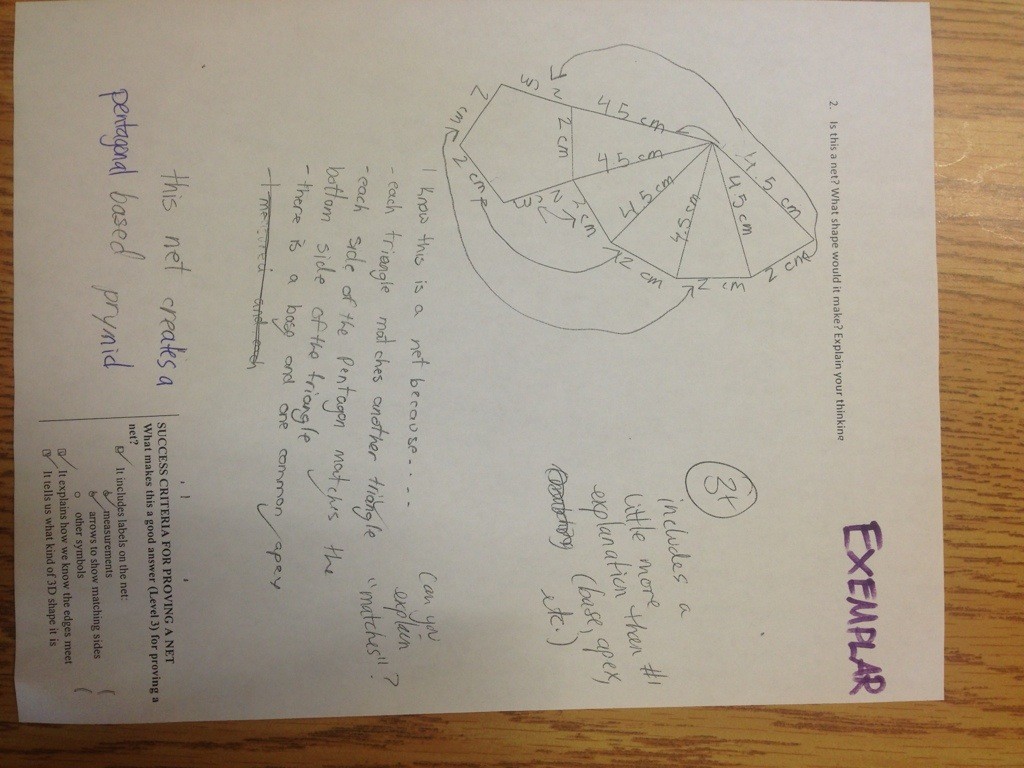 EXEMPLAR
2. Is this a net? What shape would it make? Explain your thinking
3+
includes a
little more
than #1
explanation
(base, apex,
etc.)
4.5 cm
4.5 cm
4.5 cm
4.5 cm
4.5 cm
4.5 cm
2 cm
2 cm
2 cm
2 cm
2 cm
2 cm
2 cm
I know this is a net because....
- each triangle matches another triangle
- each side of the pentagon matchs the
bottom side of the triangle
- there is a base and one common apex
- I measured and each
Can you
explain
"matches"?
this net creates a
pentagonal based prymid
SUCCESS CRITERIA FOR PROVING A NET
What makes this a good answer (Level 3) for proving a
net?
It includes labels on the net:
measurements
arrows to show matching sides
other symbols
It explains how we know the edges meet
It tells us what kind of 3D shape it is